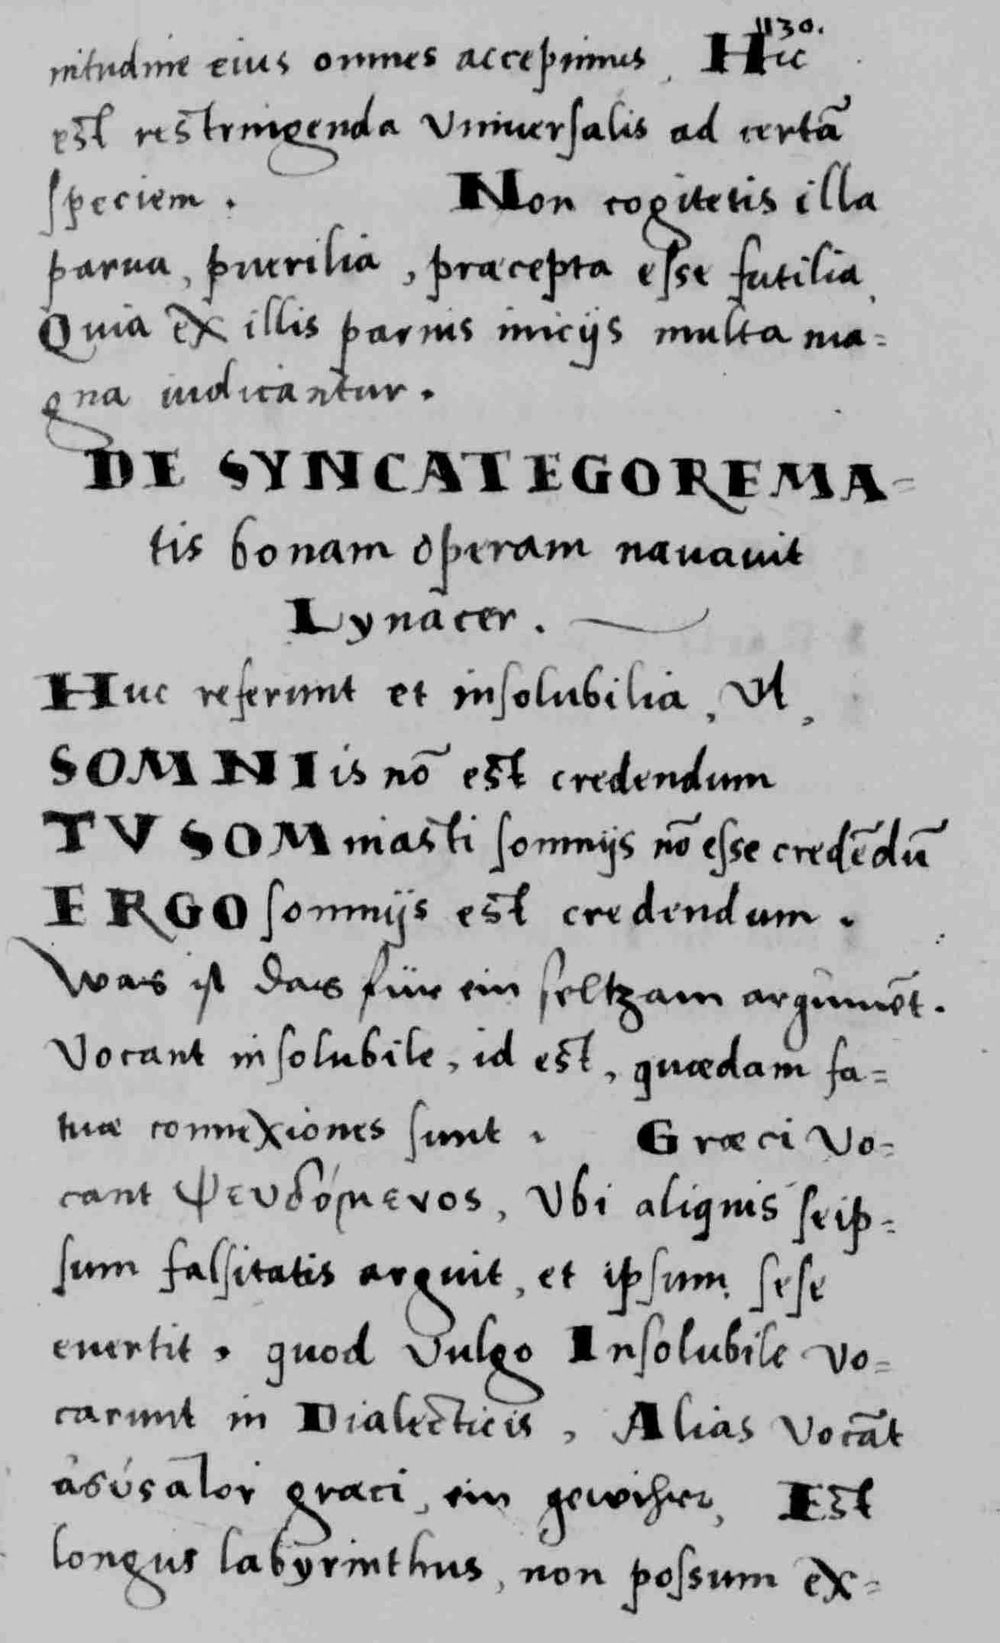 1130.
nitudine eius omnes accepimus. Hic
est restringenda Vniuersalis ad certā
speciem. Non cogitetis illa
parua, puerilia, præcepta esse futilia,
Quia ex illis paruis inicijs multa ma=
gna iudicantur.
DE SYNCATEGOREMA=
tis bonam operam nauauit
Lynacer.
Huc referunt et insolubilia, Vt,
SOMNIis nō est credendum
TV SOMniasti somnijs nō esse credēdū
ERGO somnijs est credendum.
Was ist das für ein seltzam argumēt.
Vocant insolubile, id est, quædam fa=
tuæ connexiones sunt. Græci Vo=
cant ψευδόμενος, Vbi aliquis seip=
sum falsitatis arguit, et ipsum sese
euertit. quod Vulgo Insolubile Vo=
carunt in Dialecticis, Alias Vocāt
græci, ein Est
longus labyrinthus, non possum ex=